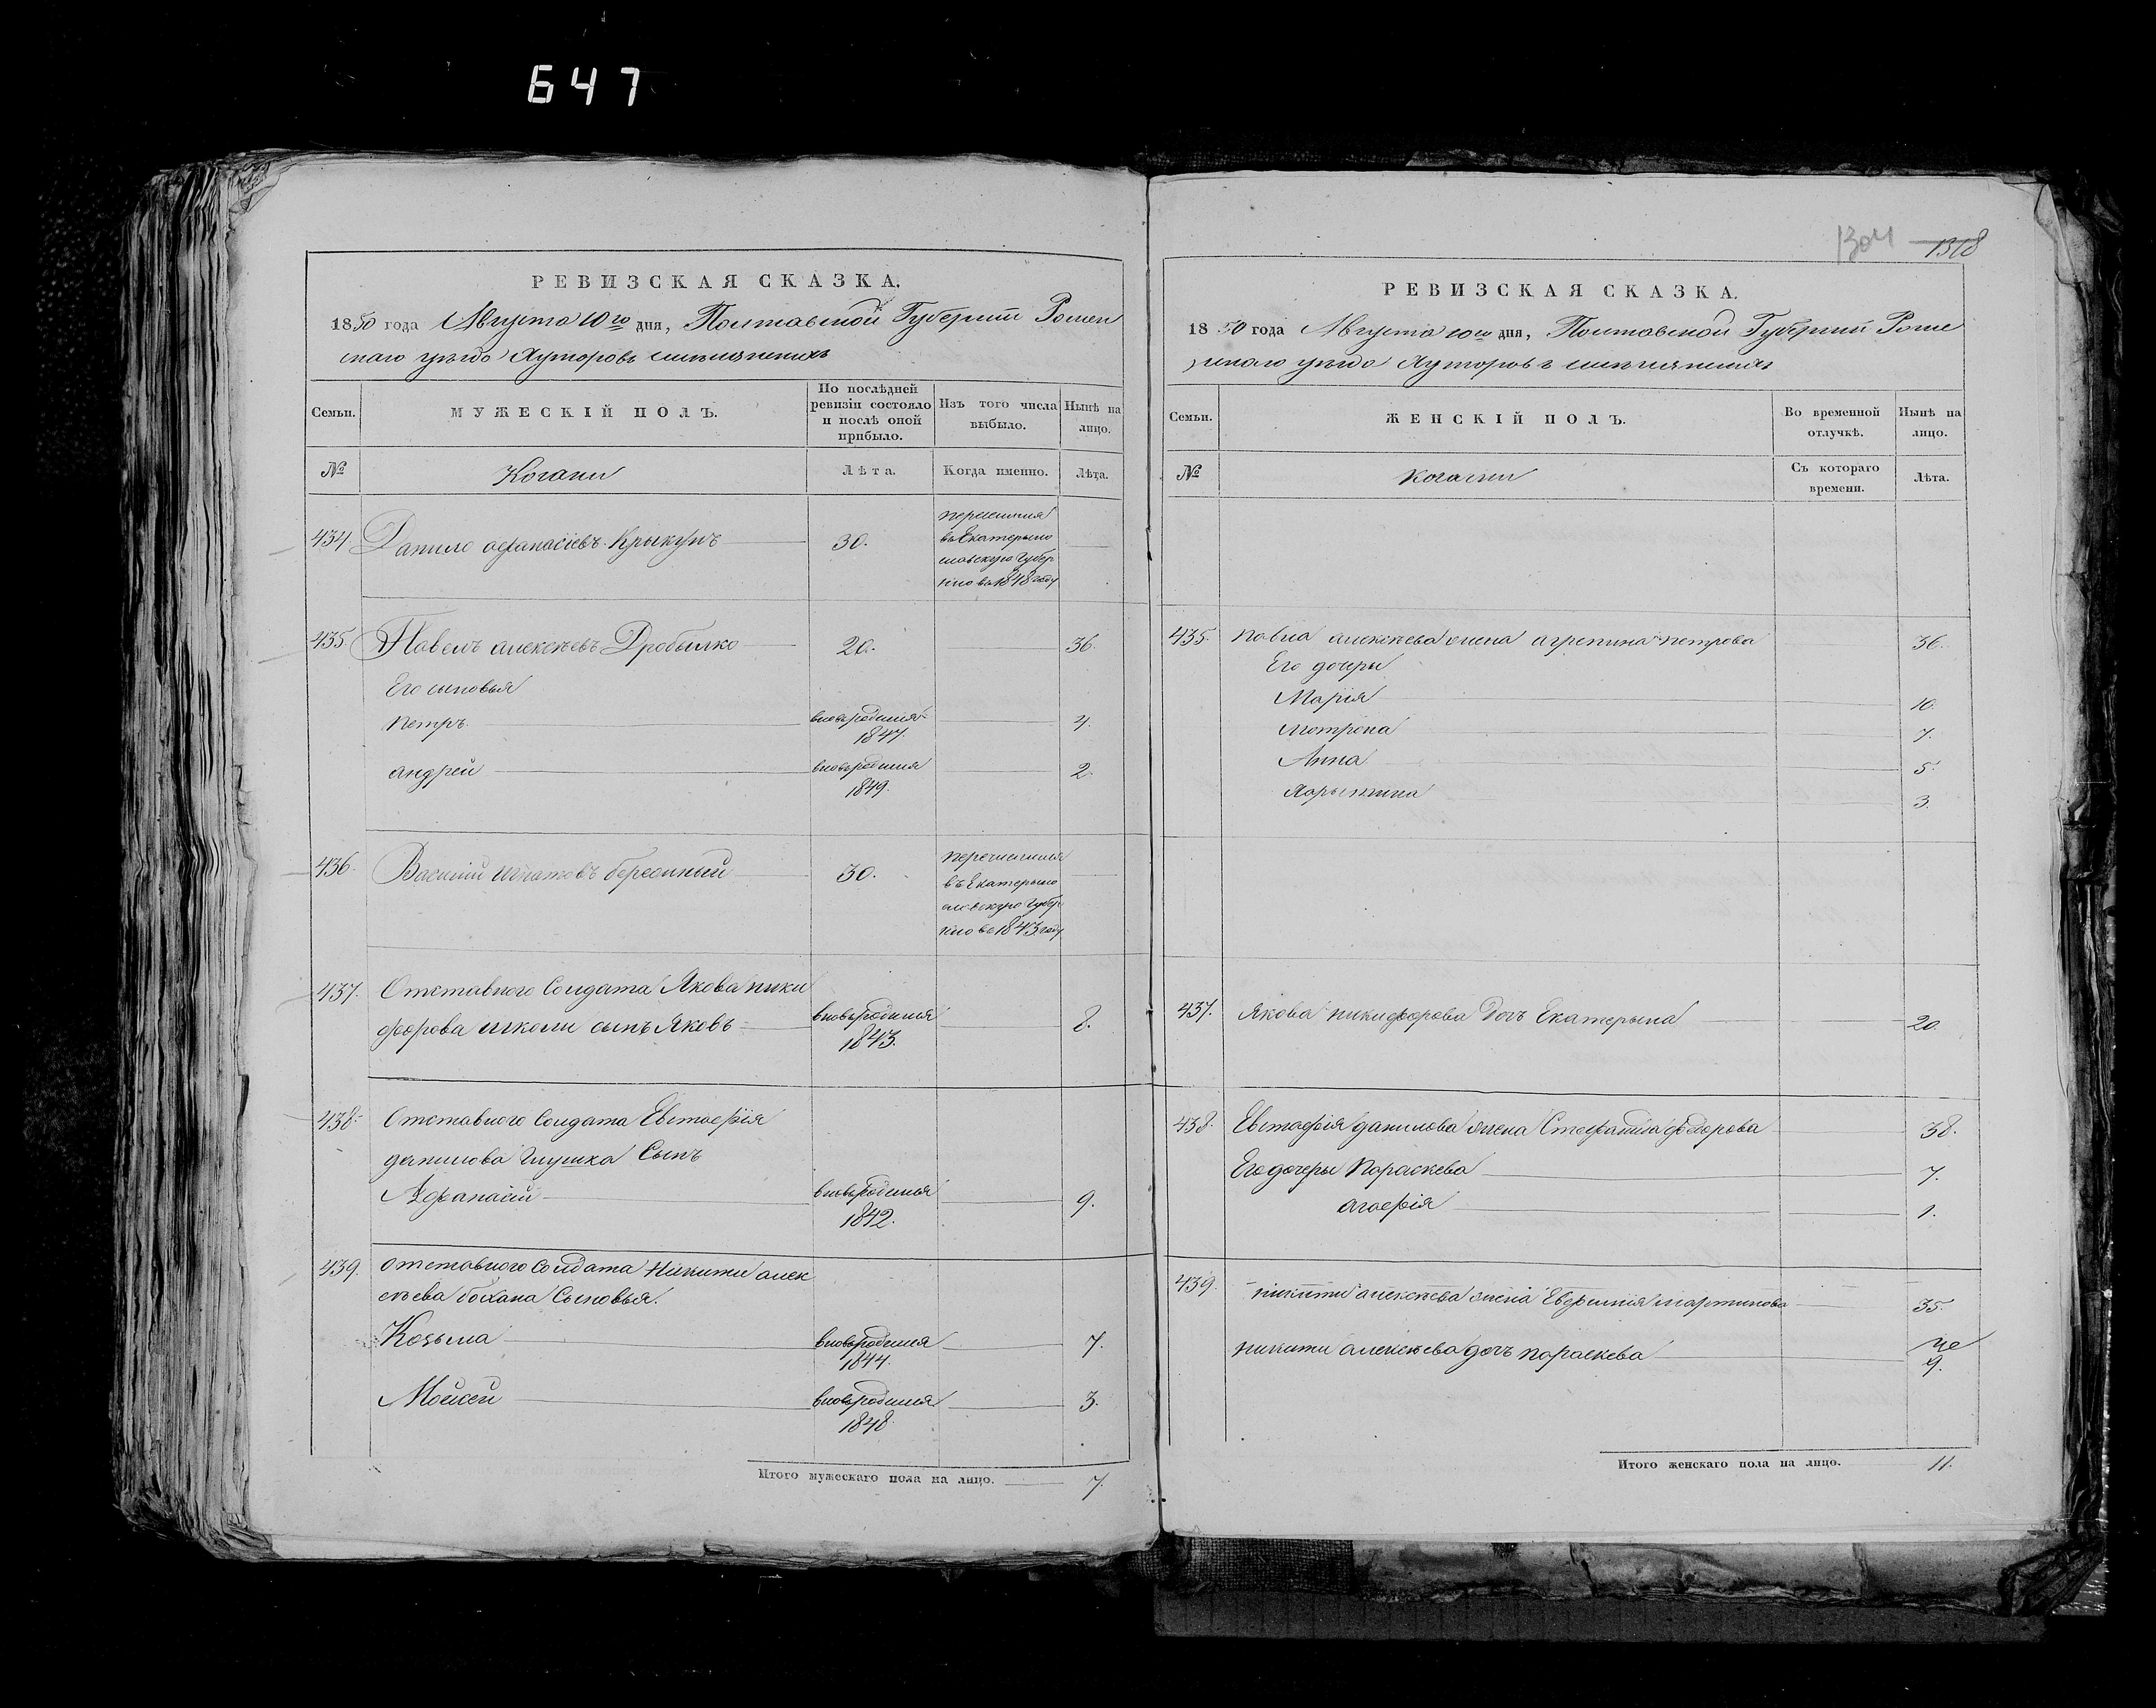 647
РЕВИЗСКАЯ СКАЗКА.
1850 года Августа 10го дня, Полтавской Губернии Ромен
скаго уезда Хуторовъ
Семьи. МУЖЕСКІЙ ПОЛЪ. По послѣдней ревизіи состояло и послѣ оной прибыло. Изъ того числа выбыло. Нынѣ на лицо.
№ Козаки Лѣта. Когда именно. Лѣта.
434 Данило афанасіевъ Крыкунъ 30.
въ Екатерино
славскую Губер
нію въ 1848 году
435 Павелъ алексѣевъ Дробылко 20. 36.
Его сыновья
Петръ вновьродился 1847. 4.
андрей вновьродился 1849. 2.
436. Василій Игнатовъ 30.
перечислился
въ Екатерино
славскую Губер
нію въ 1843 году
437. Отставного Солдата Якова ники
форова сынъ Яковъ вновьродился 1843. 8.
438. Отставного Солдата Евстафія
данилова Глушка Сынъ
Афанасій вновьродился 1842. 9.
439. отставного Солдата Никиты алек
сѣева Сыновья.
Козьма вновьродился 1844. 7.
Мойсей вновьродился 1848. 3.
Итого мужескаго пола на лицо. 7.
1304 1318
РЕВИЗСКАЯ СКАЗКА.
1850 года Августа 10го дня, Полтавской Губерніи Роме
нскаго уезда Хуторовъ
Семьи. ЖЕНСКІЙ ПОЛЪ. Во временной отлучкѣ. Нынѣ на лицо.
№ Козачки Съ котораго времени. Лѣта.
435. Павла алексѣева жена агрепина петрова 36.
Его дочеры
Марія 10.
Мотрона 7.
Анна 5.
3.
437. Якова никифорова Дочь Екатерына 20.
438. Евстафія данилова жена Стефанида федорова 38.
Его дочеры Параскева 7.
агафія 1.
439. никиты алексѣева жена Евфимія мартинова 35.
никиты алексѣева дочь параскева 9.
Итого женскаго пола на лицо. 11.